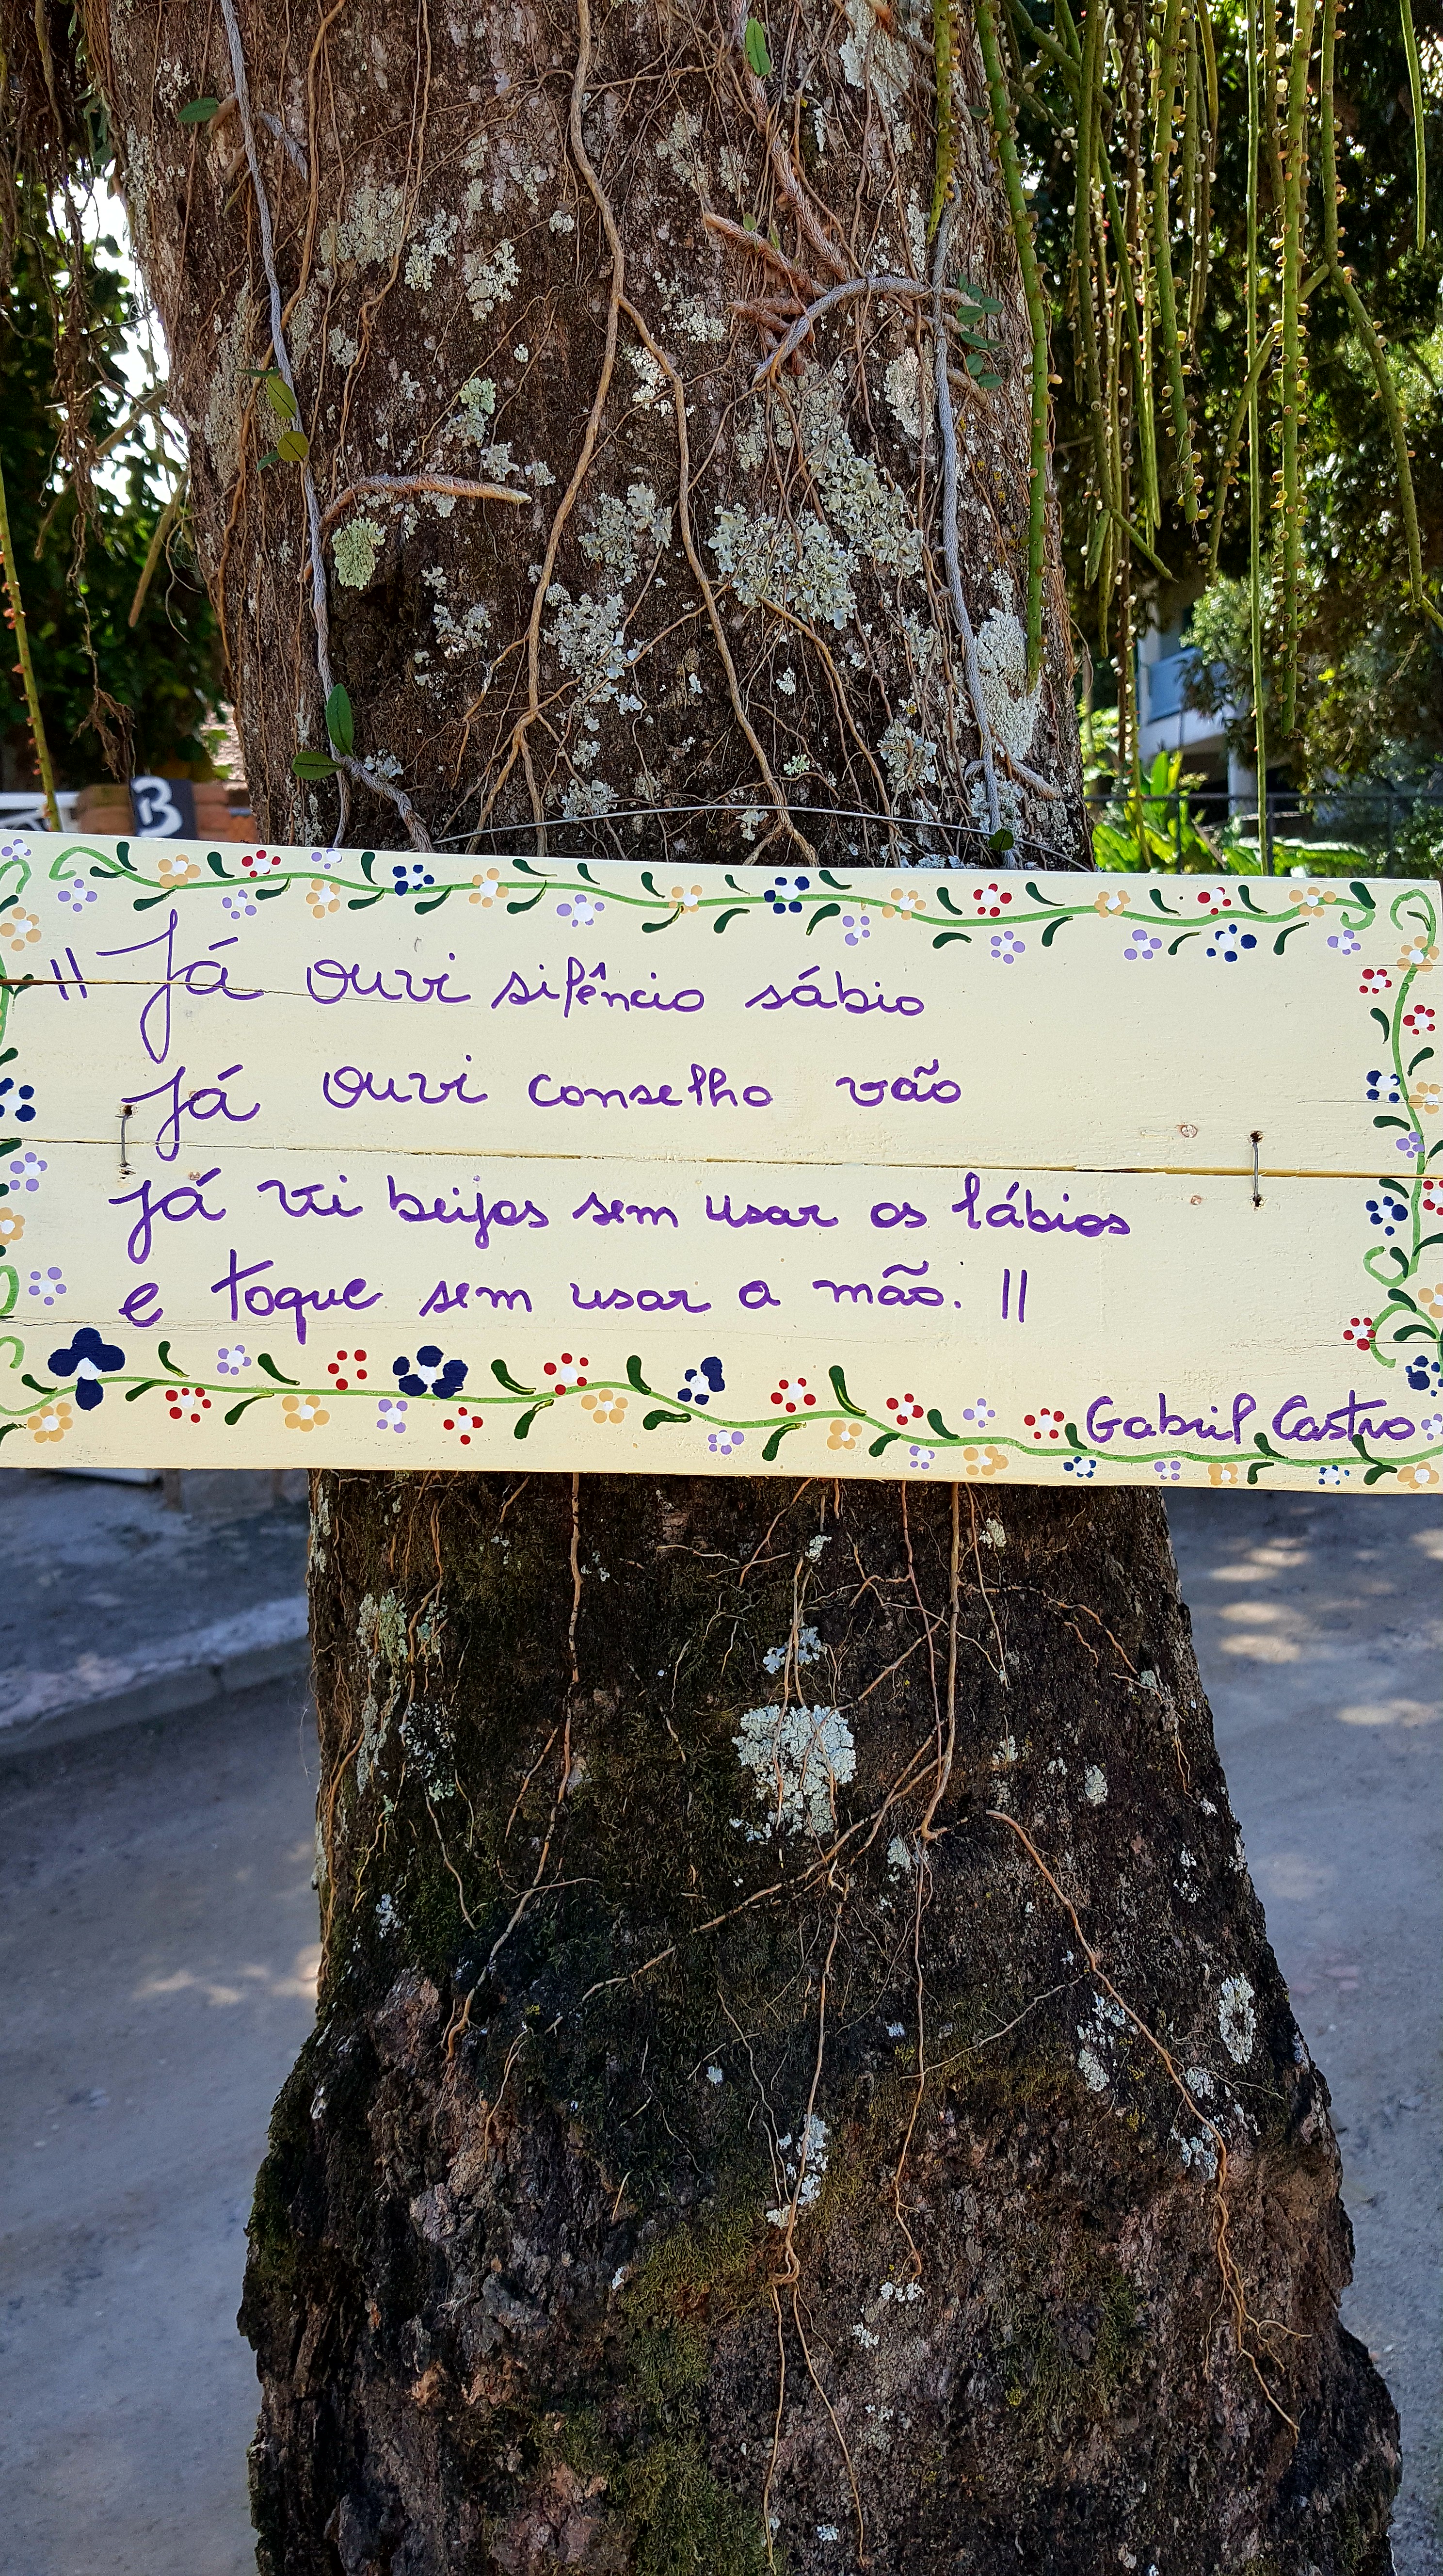 B
"Já ouvi silêncio sábio
Já ouvi conselho vão
Já vi beijos sem usar os lábios
e toque sem usar a mão."
Gabriel Castro